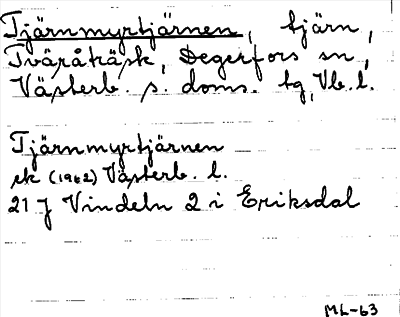 Tjärnmyrtjärnen, tjärn,
Tväråträsk, Degerfors sn,
Västerb. s. doms. tg, Vb. l.
Tjärnmyrtjärnen
ek (1962) Västerb. l.
21 J Vindeln 2 i Eriksdal
ML-63